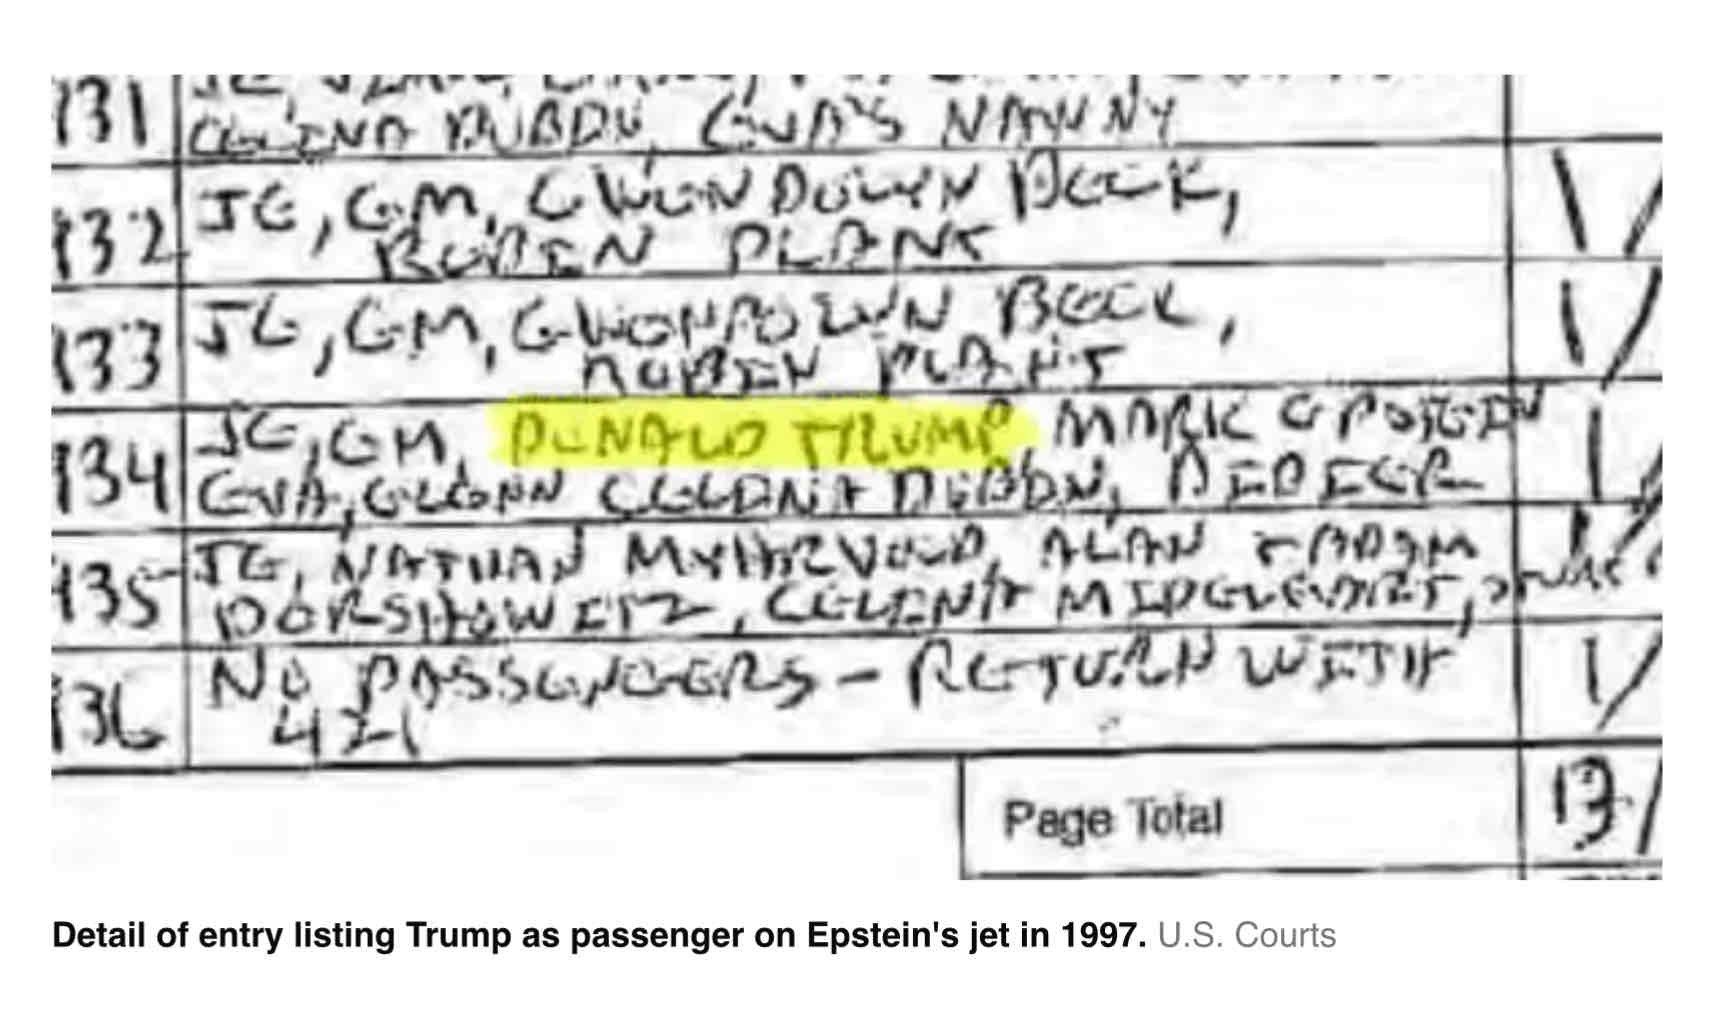 131
CELINA DUBIN, EVA'S NANNY
132 JE, GM, GWENDOLYN BECK,
ROBIN PLANK
133 JE, GM, GWENDOLYN BECK,
ROBIN PLANK
134 JE, GM, DONALD TRUMP, MARK EPSTEIN
EVA, GLENN CELINA DUBIN, DIDIER
135 JE, NATHAN MYHRVOLD, ALAN
DERSHOWITZ, CELINA MIDELFART,
136 NO PASSENGERS - RETURN WITH
421
Page Total 13
Detail of entry listing Trump as passenger on Epstein's jet in 1997. U.S. Courts